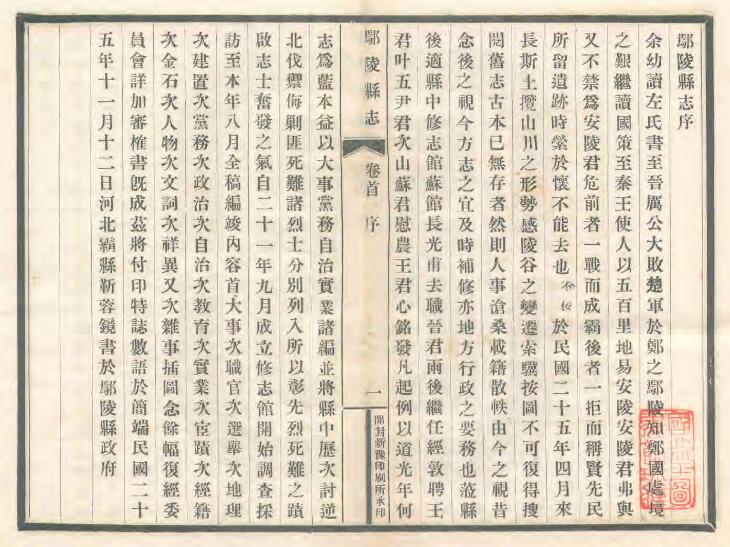 鄢陵縣志序
余幼讀左氏書至晉厲公大敗楚軍於鄭之鄢陵知鄭國處境
之艱繼讀國策至秦王使人以五百里地易安陵安陵君弗與
又不禁為安陵君危前者一戰而成霸後者一拒而稱賢先民
所留遺跡時縈於懷不能去也不佞於民國二十五年四月來
長斯土攬山川之形勢感陵谷之變遷索驥按圖不可復得搜
閱舊志古本已無存者然則人事滄桑載籍散帙由今之視昔
念後之視今方志之宜及時補修亦地方行政之要務也蒞縣
後適縣中修志館蘇館長光甫去職晉君雨後繼任經敦聘王
君叶五尹君次山蘇君慰農王君心銘發凡起例以道光年何
鄢陵縣志
卷首
序
一
開封新豫印刷所承印
志為藍本益以大事黨務自治實業諸編並將縣中歷次討逆
北伐禦侮剿匪死難諸烈士分別列入所以彰先烈死難之蹟
啟志士奮發之氣自二十一年九月成立修志館開始調查採
訪至本年八月全稿編竣內容首大事次職官次選舉次地理
次建置次黨務次政治次自治次教育次實業次宦蹟次經籍
次金石次人物次文詞次祥異又次雜事插圖念餘幅復經委
員會詳加審榷書旣成茲將付印特誌數語於簡端民國二十
五年十一月十二日河北霸縣靳蓉鏡書於鄢陵縣政府